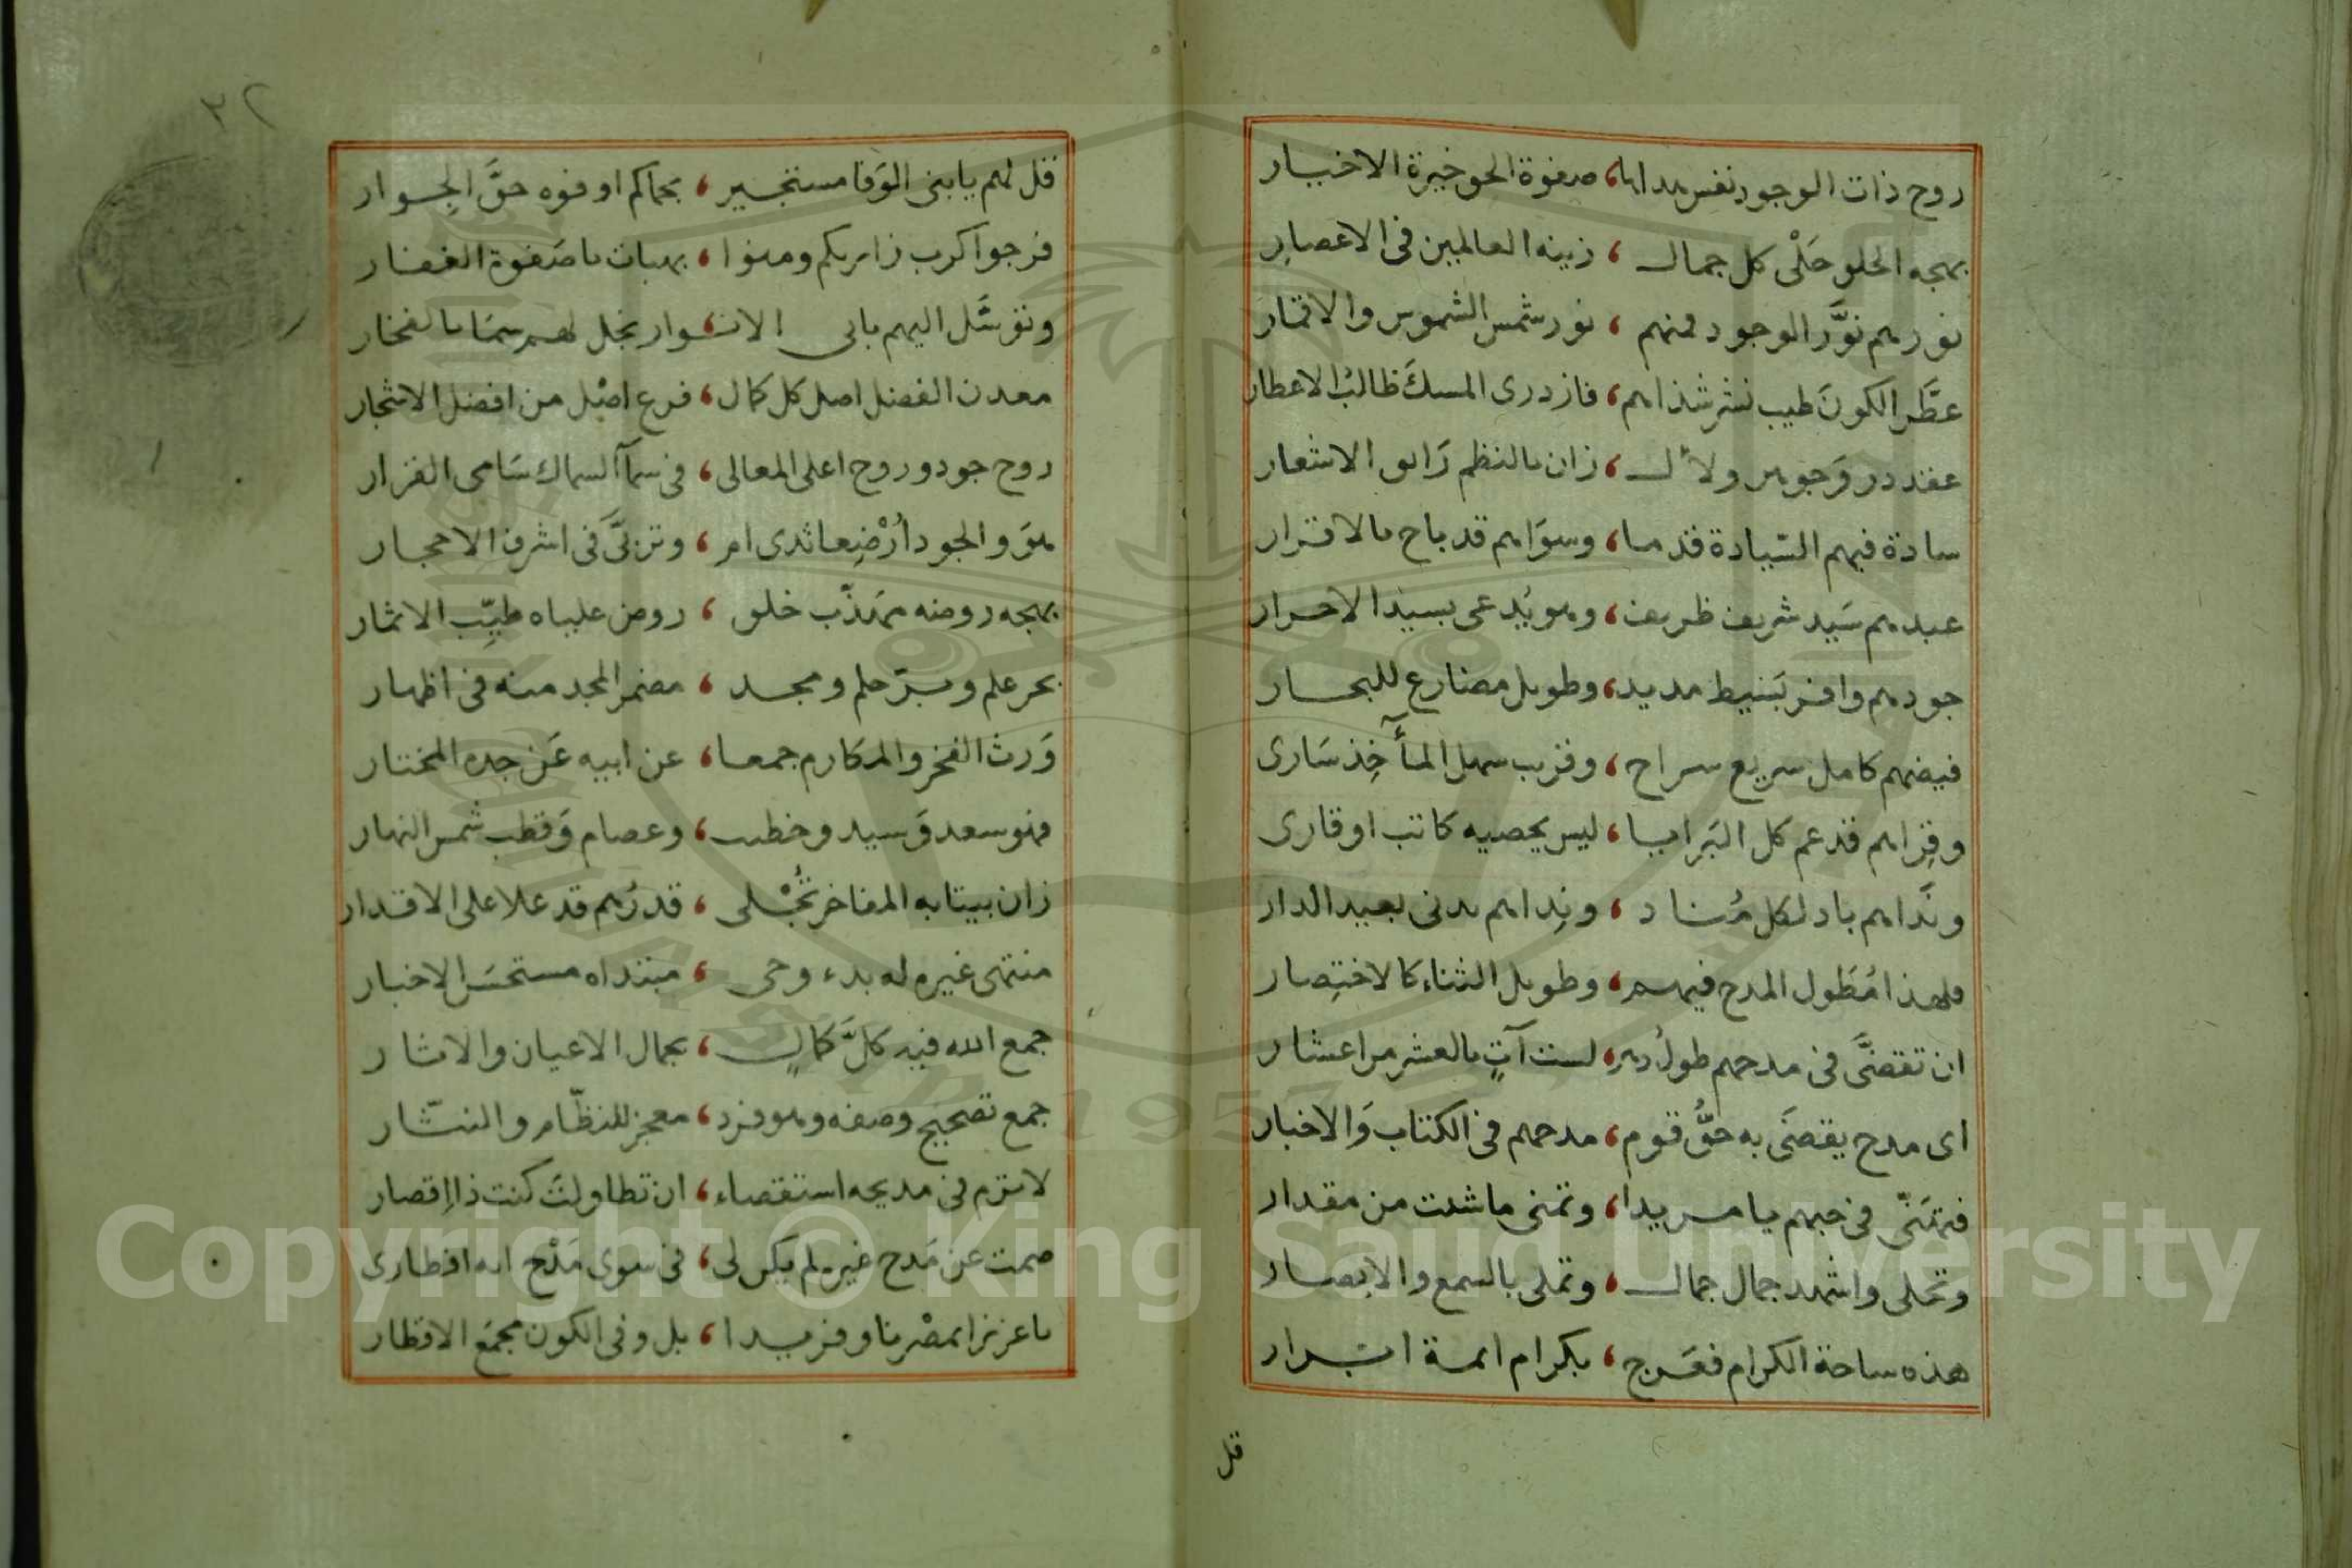 روح ذات الوجود نفس هداها، صفوة الحق خيرة الاخيار
بهجه الخلق حَلْى كل جمال، زينه العالمين فى الاعصار
نورهم نوَّر الوجود فمنهم، نور شمس الشموس والاقمار
عطَّر الكونَ طيب نشر شذاهم، فازدرى المسكَ طالبُ الاعطار
عقد در وَجوهر ولآل، زان بالنظم رَائق الاشعار
سادة فيهم السّيادة قدما، وسوَاهم قد باح بالاقرار
عبدهم سَيد شريف ظريف، وهو يُدعى بسيد الاحرار
جودهم وافر بَسيط مديد، وطويل مضارع للبحار
فيضهم كامل سريع سراح، وقريب سهل المأخِذ سَارى
وقِراهم قد عم كل البَرايا، ليس يحصيه كاتب او قارى
ونَداهم باد لكل مُناد، ونِداهم يدنى بعيد الدار
فلهذا مُطَول المدح فيهم، وطويل الثناء كالاختِصار
ان تقضَّى فى مدحهم طولُ دهرٍ، لست آتٍ بالعشر من اعشار
اى مدح يقضَى به حقُّ قوم، مدحهم فى الكتاب وَالاخبار
فتمَنّى فى حبهم يا مريدا، وتمنى ما شئت من مقدار
وتحلى واشهد جمال جمال، وتملى بالسمع والابصار
هذه ساحة الكرام فعَرج، بكرام ائمة ابرار
قل
٣٢
قل لهم يا بنى الوَفا مستجير، بحماكم اوفوه حقَّ الجِوار
فرجوا كرب زائريكم ومنوا، بهبات يا صَفوة الغفار
وتوسَّل اليهم بابى الانوار، نجل لهم سمَا بالفخار
معدن الفضل اصل كل كمال، فرع اصْل من افضل الاشجار
روح جود وروح اعلى المعالى، فى سمآ السماك سَامى القرار
هوَ والجود اُرْضِعا ثدى ام، وتربَّى فى اشرف الاحجار
بهجه روضه مهَذّب خلق، روض علياه طيِّب الاثمار
بحر علم وبرّ حلم ومجد، مضمر المجد منه فى اظهار
وَرث الفخر والمكارم جمعا، عن ابيه عَن جده المختار
فهو سعد وَسيد وخطيب، وعصام وَقطب شمس النهار
زان بيتا به المفاخر تُجْلى، قدرُهم قد علا على الاقدار
منتهى غيره له بدء وحى، مبتداه مستحسَن الاخبار
جمع الله فيه كلَّ كمالٍ، بجمال الاعيان والاثار
جمع تصحيح وصفه وهو فرد، معجز للنظّام والنثّار
لا ترم فى مديحه استقصاء، ان تطاولتَ كنت ذا اِقصار
صمت عن مَدح غيره لم يكن لى، فى سوى مَدْح ابه افطارى
يا عزيزا بمصْرنا وفريدا، بل وفى الكون مجمَع الاقطار